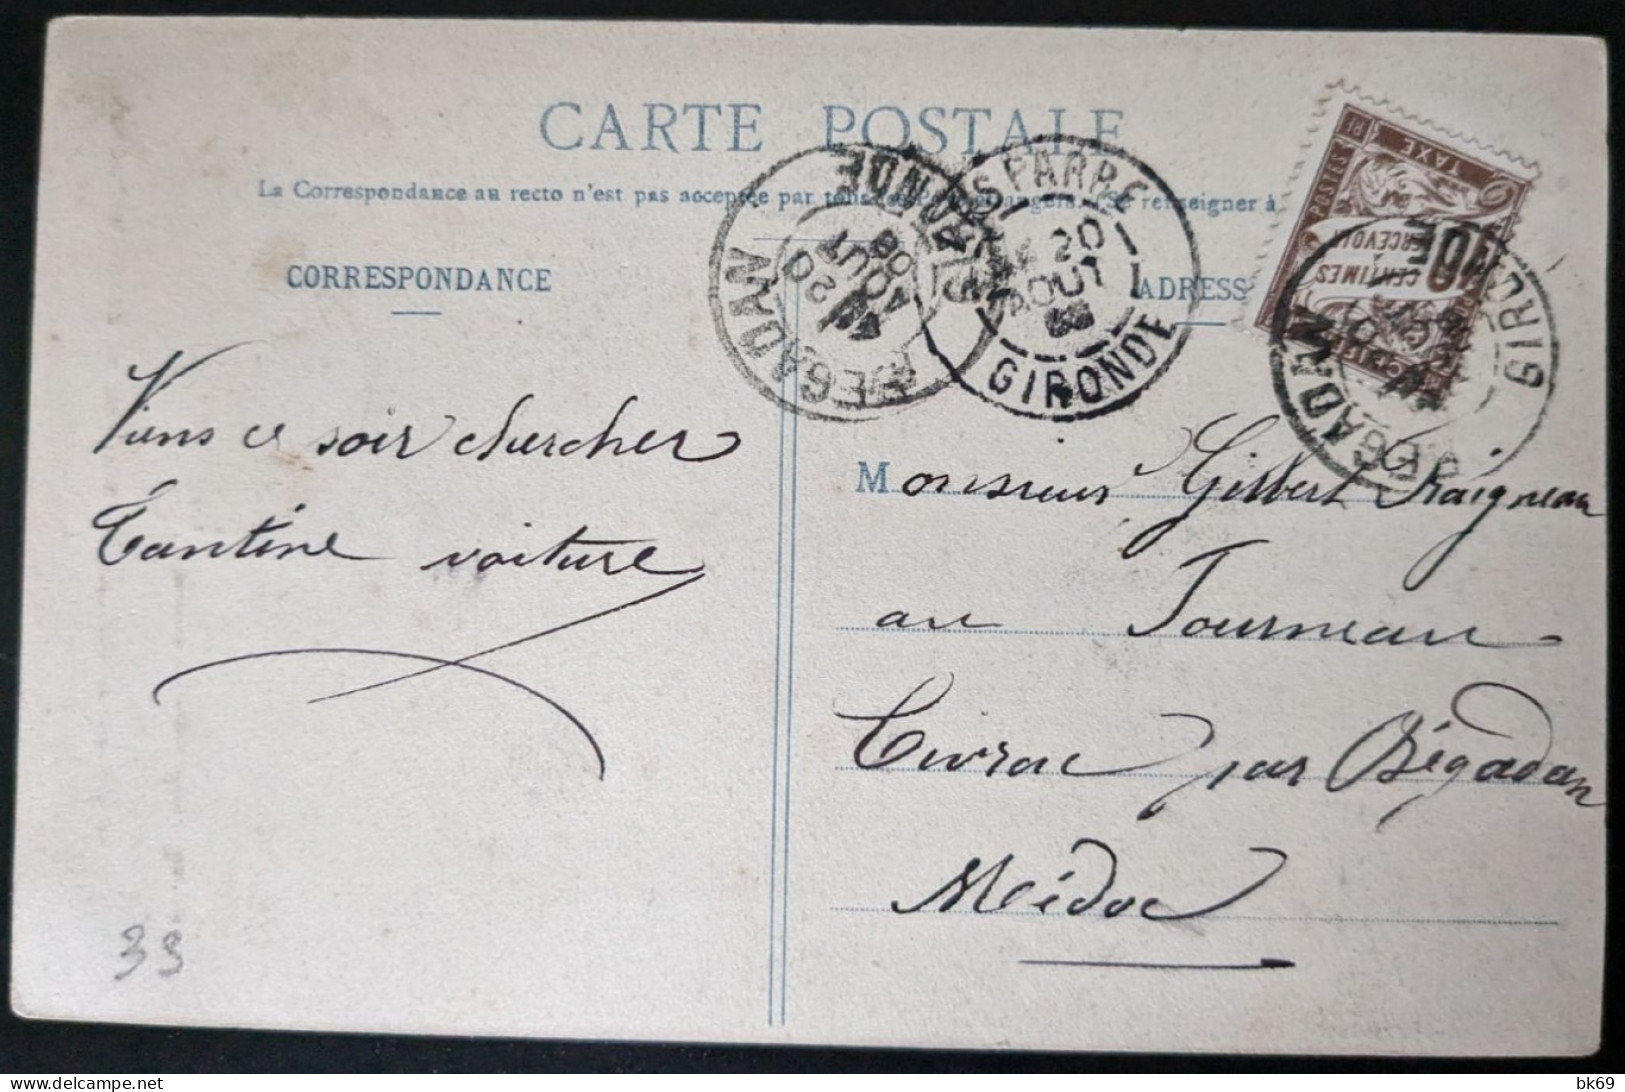 CARTE POSTALE
La Correspondance au recto n'est pas acceptée par tous se renseigner à
CORRESPONDANCE
ADRESSE
ST PARRE
20
AOUT
GIRONDE
BEGADAN
20
AOUT
08
GIRONDE
POSTES
TAXE
10
CENTIMES
PERCEVOIR
BEGADAN
GIRONDE
Viens ce soir chercher
Tantine voiture
Monsieur Gilbert Fraigneau
au Tourneau -
Civrac par Bégadan
Médoc
33
bk69